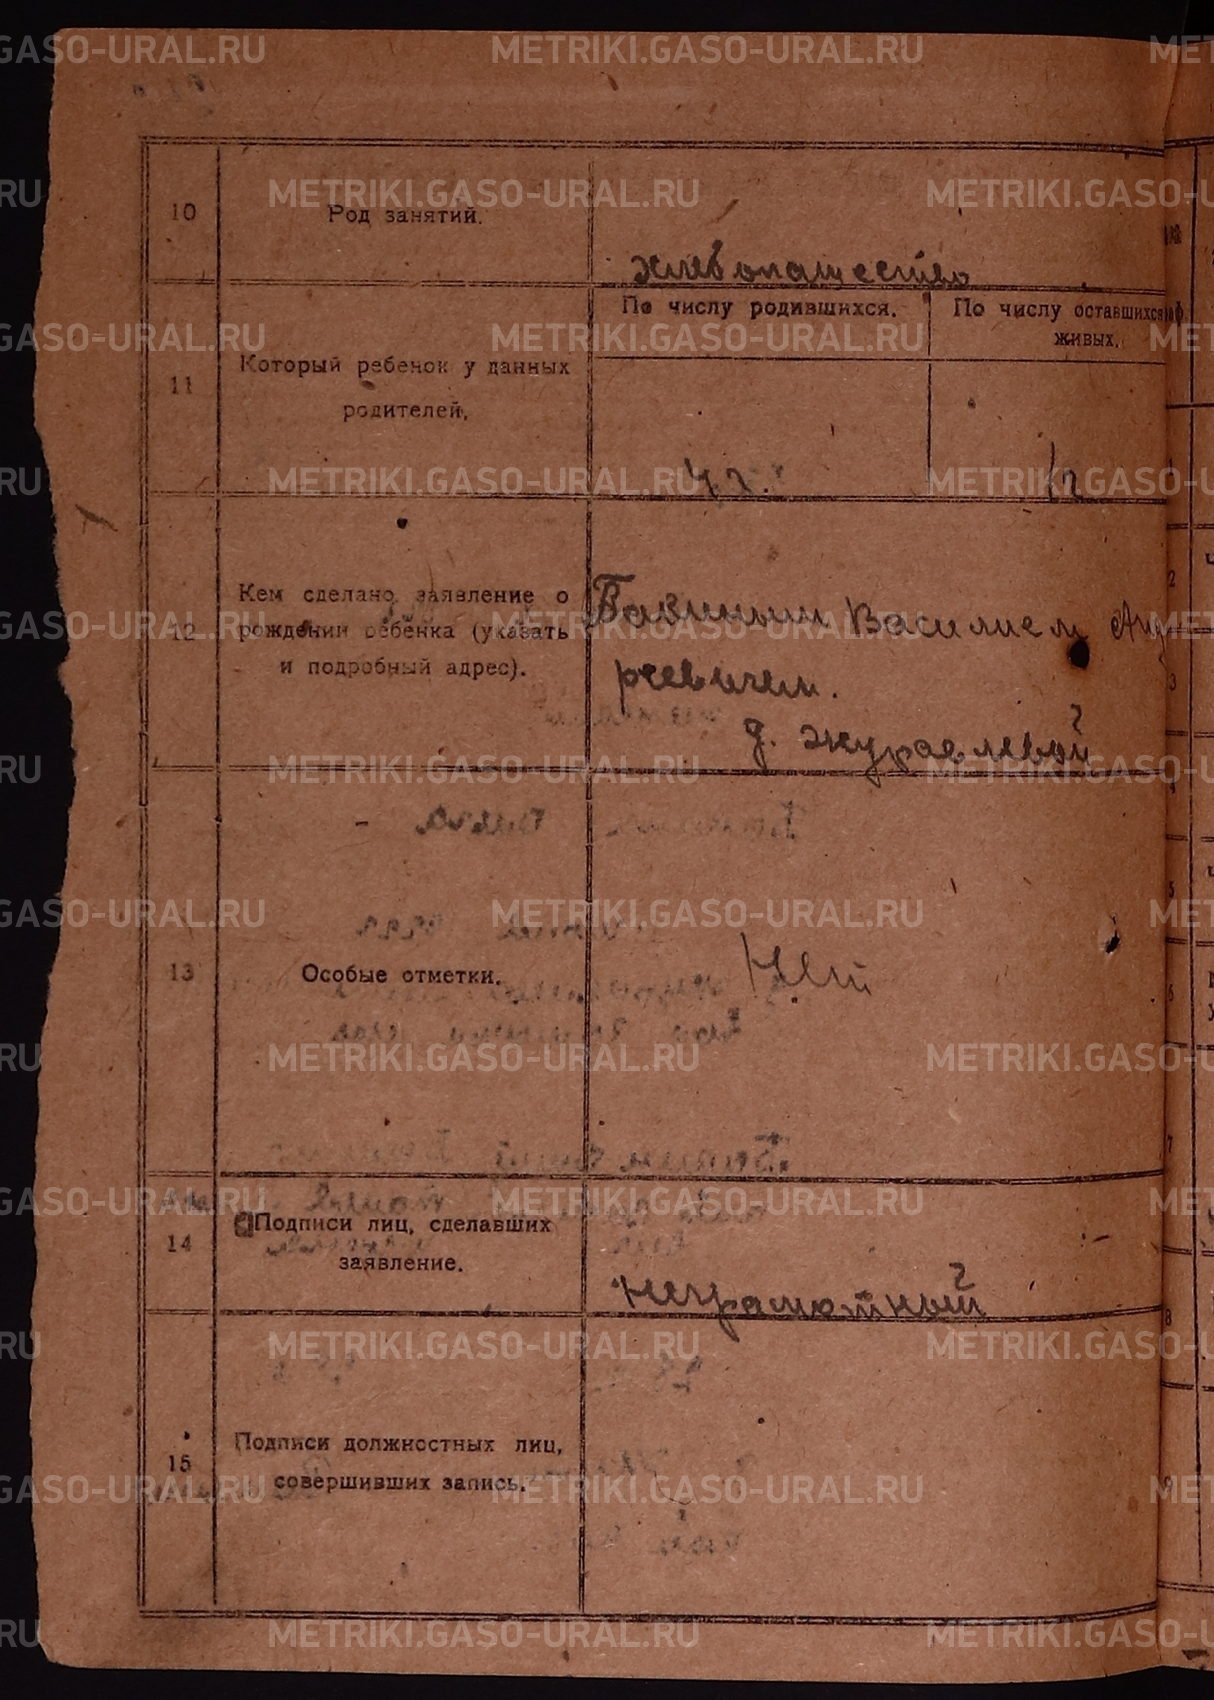 METRIKI.GASO-URAL.RU
10
Род занятий.
хлебопашество
11
Который ребенок у данных
родителей.
По числу родившихся.
По числу оставшихся
живых.
12
Кем сделано заявление о
рождении ребенка (указать
и подробный адрес).
Василием Анд
реевичем.
д. Журавлевой
13
Особые отметки.
Нет
14
Подписи лиц, сделавших
заявление.
Неграмотный
15
Подписи должностных лиц,
совершивших запись.